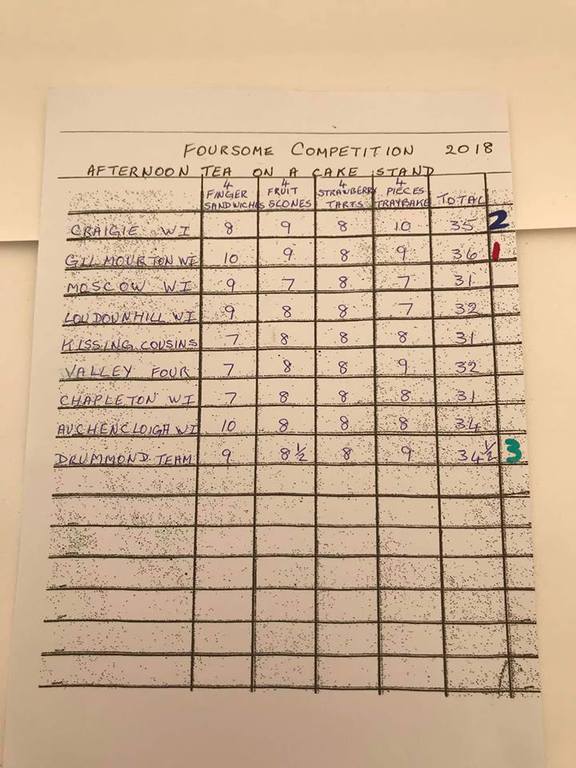 FOURSOME COMPETITION 2018
AFTERNOON TEA ON A CAKE STAND
4 FINGER SANDWICHES 4 FRUIT SCONES 4 STRAWBERRY TARTS 4 PIECES TRAYBAKE TOTAL
CRAIGIE WI 8 9 8 10 35 2
GILMOURTON WI 10 9 8 9 36 1
MOSCOW WI 9 7 8 7 31
LOUDOUNHILL WI 9 8 8 7 32
KISSING COUSINS 7 8 8 8 31
VALLEY FOUR 7 8 8 9 32
CHAPLETON WI 7 8 8 8 31
AUCHENCLOIGH WI 10 8 8 8 34
DRUMMOND TEAM 9 8½ 8 9 34½ 3